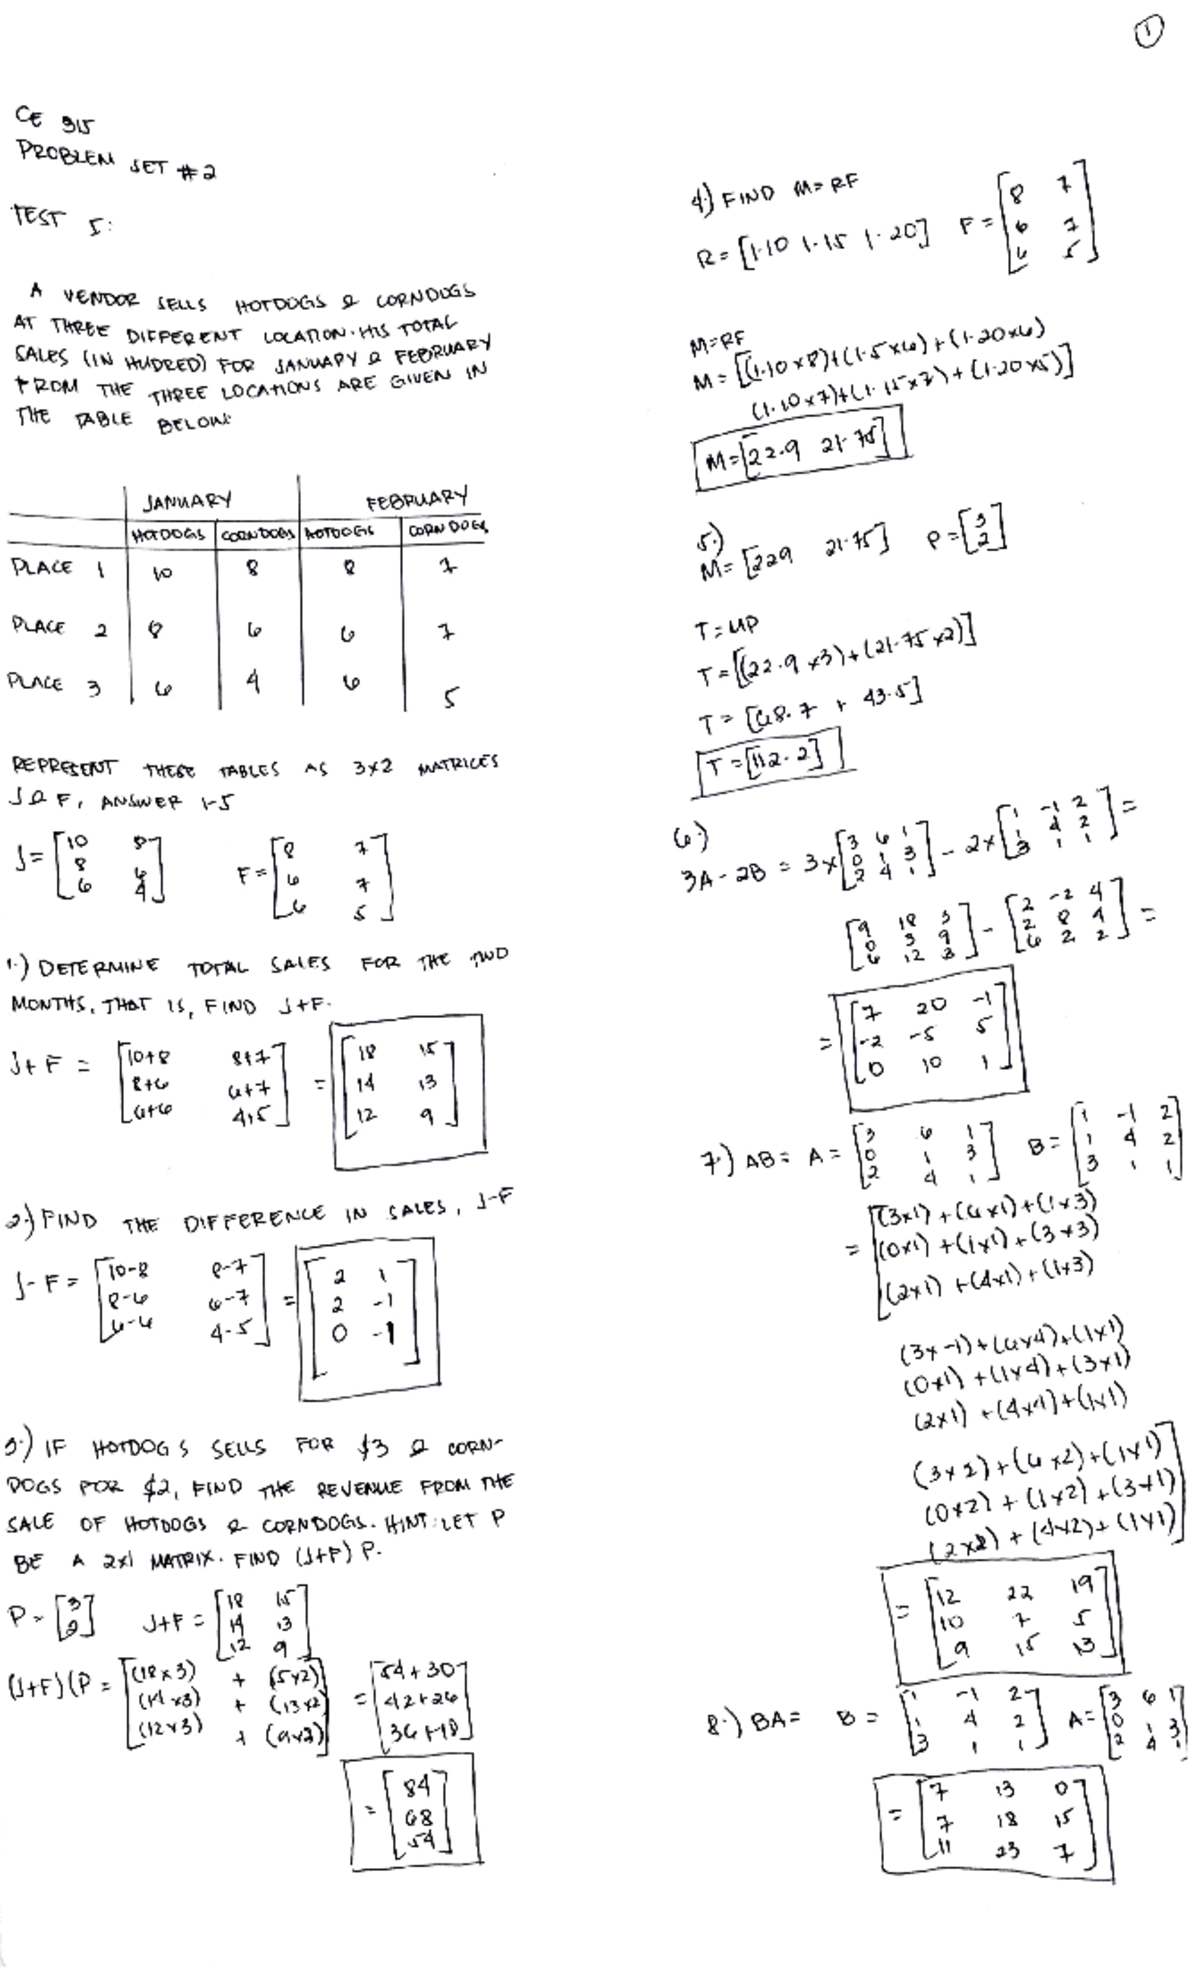 1
CE 315
PROBLEM SET #2
TEST 5:
A VENDOR SELLS HOTDOGS & CORNDOGS
AT THREE DIFFERENT LOCATION. HIS TOTAL
SALES (IN HUDRED) FOR JANUARY & FEBRUARY
FROM THE THREE LOCATIONS ARE GIVEN IN
THE TABLE BELOW:
JANUARY FEBRUARY
HOTDOGS CORNDOGS HOTDOGS CORNDOGS
PLACE 1 10 8 8 7
PLACE 2 8 6 6 7
PLACE 3 6 4 6 5
REPRESENT THESE TABLES AS 3x2 MATRICES
J & F, ANSWER 1-5
J = [10 8 F = [8 7
8 6 6 7
6 4] 6 5]
1.) DETERMINE TOTAL SALES FOR THE TWO
MONTHS, THAT IS, FIND J+F.
J+F = [10+8 8+7 = [18 15
8+6 6+7 14 13
6+6 4+5] 12 9]
2.) FIND THE DIFFERENCE IN SALES, J-F
J-F = [10-8 8-7 = [2 1
8-6 6-7 2 -1
6-6 4-5] 0 -1]
3.) IF HOTDOGS SELLS FOR $3 & CORN-
DOGS FOR $2, FIND THE REVENUE FROM THE
SALE OF HOTDOGS & CORNDOGS. HINT: LET P
BE A 2x1 MATRIX. FIND (J+F) P.
P = [3 J+F = [18 15
2] 14 13
12 9]
(J+F)(P = [(18x3) + (5x2) = [54+30
(14x3) + (13x2) 42+26
(12x3) + (9x2)] 36+18]
= [84
68
54]
4.) FIND M=RF
R = [1.10 1.15 1.20] F = [8 7
6 7
6 5]
M=RF
M = [(1.10x8)+(1.5x6)+(1.20x6)
(1.10x7)+(1.15x7)+(1.20x5)]
M = [22.9 21.75]
5.)
M = [229 21.75] P = [3
2]
T = MP
T = [(22.9x3)+(21.75x2)]
T = [68.7 + 43.5]
T = [112.2]
6.)
3A - 2B = 3x[3 6 1 - 2x[1 -1 2 =
0 1 3 1 4 2
2 4 1] 3 1 1]
[9 18 3 - [2 -2 4 =
0 3 9 2 8 4
6 12 3] 6 2 2]
= [7 20 -1
-2 -5 5
0 10 1]
7.) AB = A = [3 6 1 B = [1 -1 2
0 1 3 1 4 2
2 4 1] 3 1 1]
= [(3x1)+(6x1)+(1x3)
(0x1)+(1x1)+(3x3)
(2x1)+(4x1)+(1x3)
(3x-1)+(6x4)+(1x1)
(0x1)+(1x4)+(3x1)
(2x1)+(4x4)+(1x1)
(3x2)+(6x2)+(1x1)
(0x2)+(1x2)+(3x1)
(2x2)+(4x2)+(1x1)]
= [12 22 19
10 7 5
9 15 13]
8.) BA = B = [1 -1 2 A = [3 6 1
1 4 2 0 1 3
3 1 1] 2 4 1]
= [7 13 0
7 18 15
11 23 7]